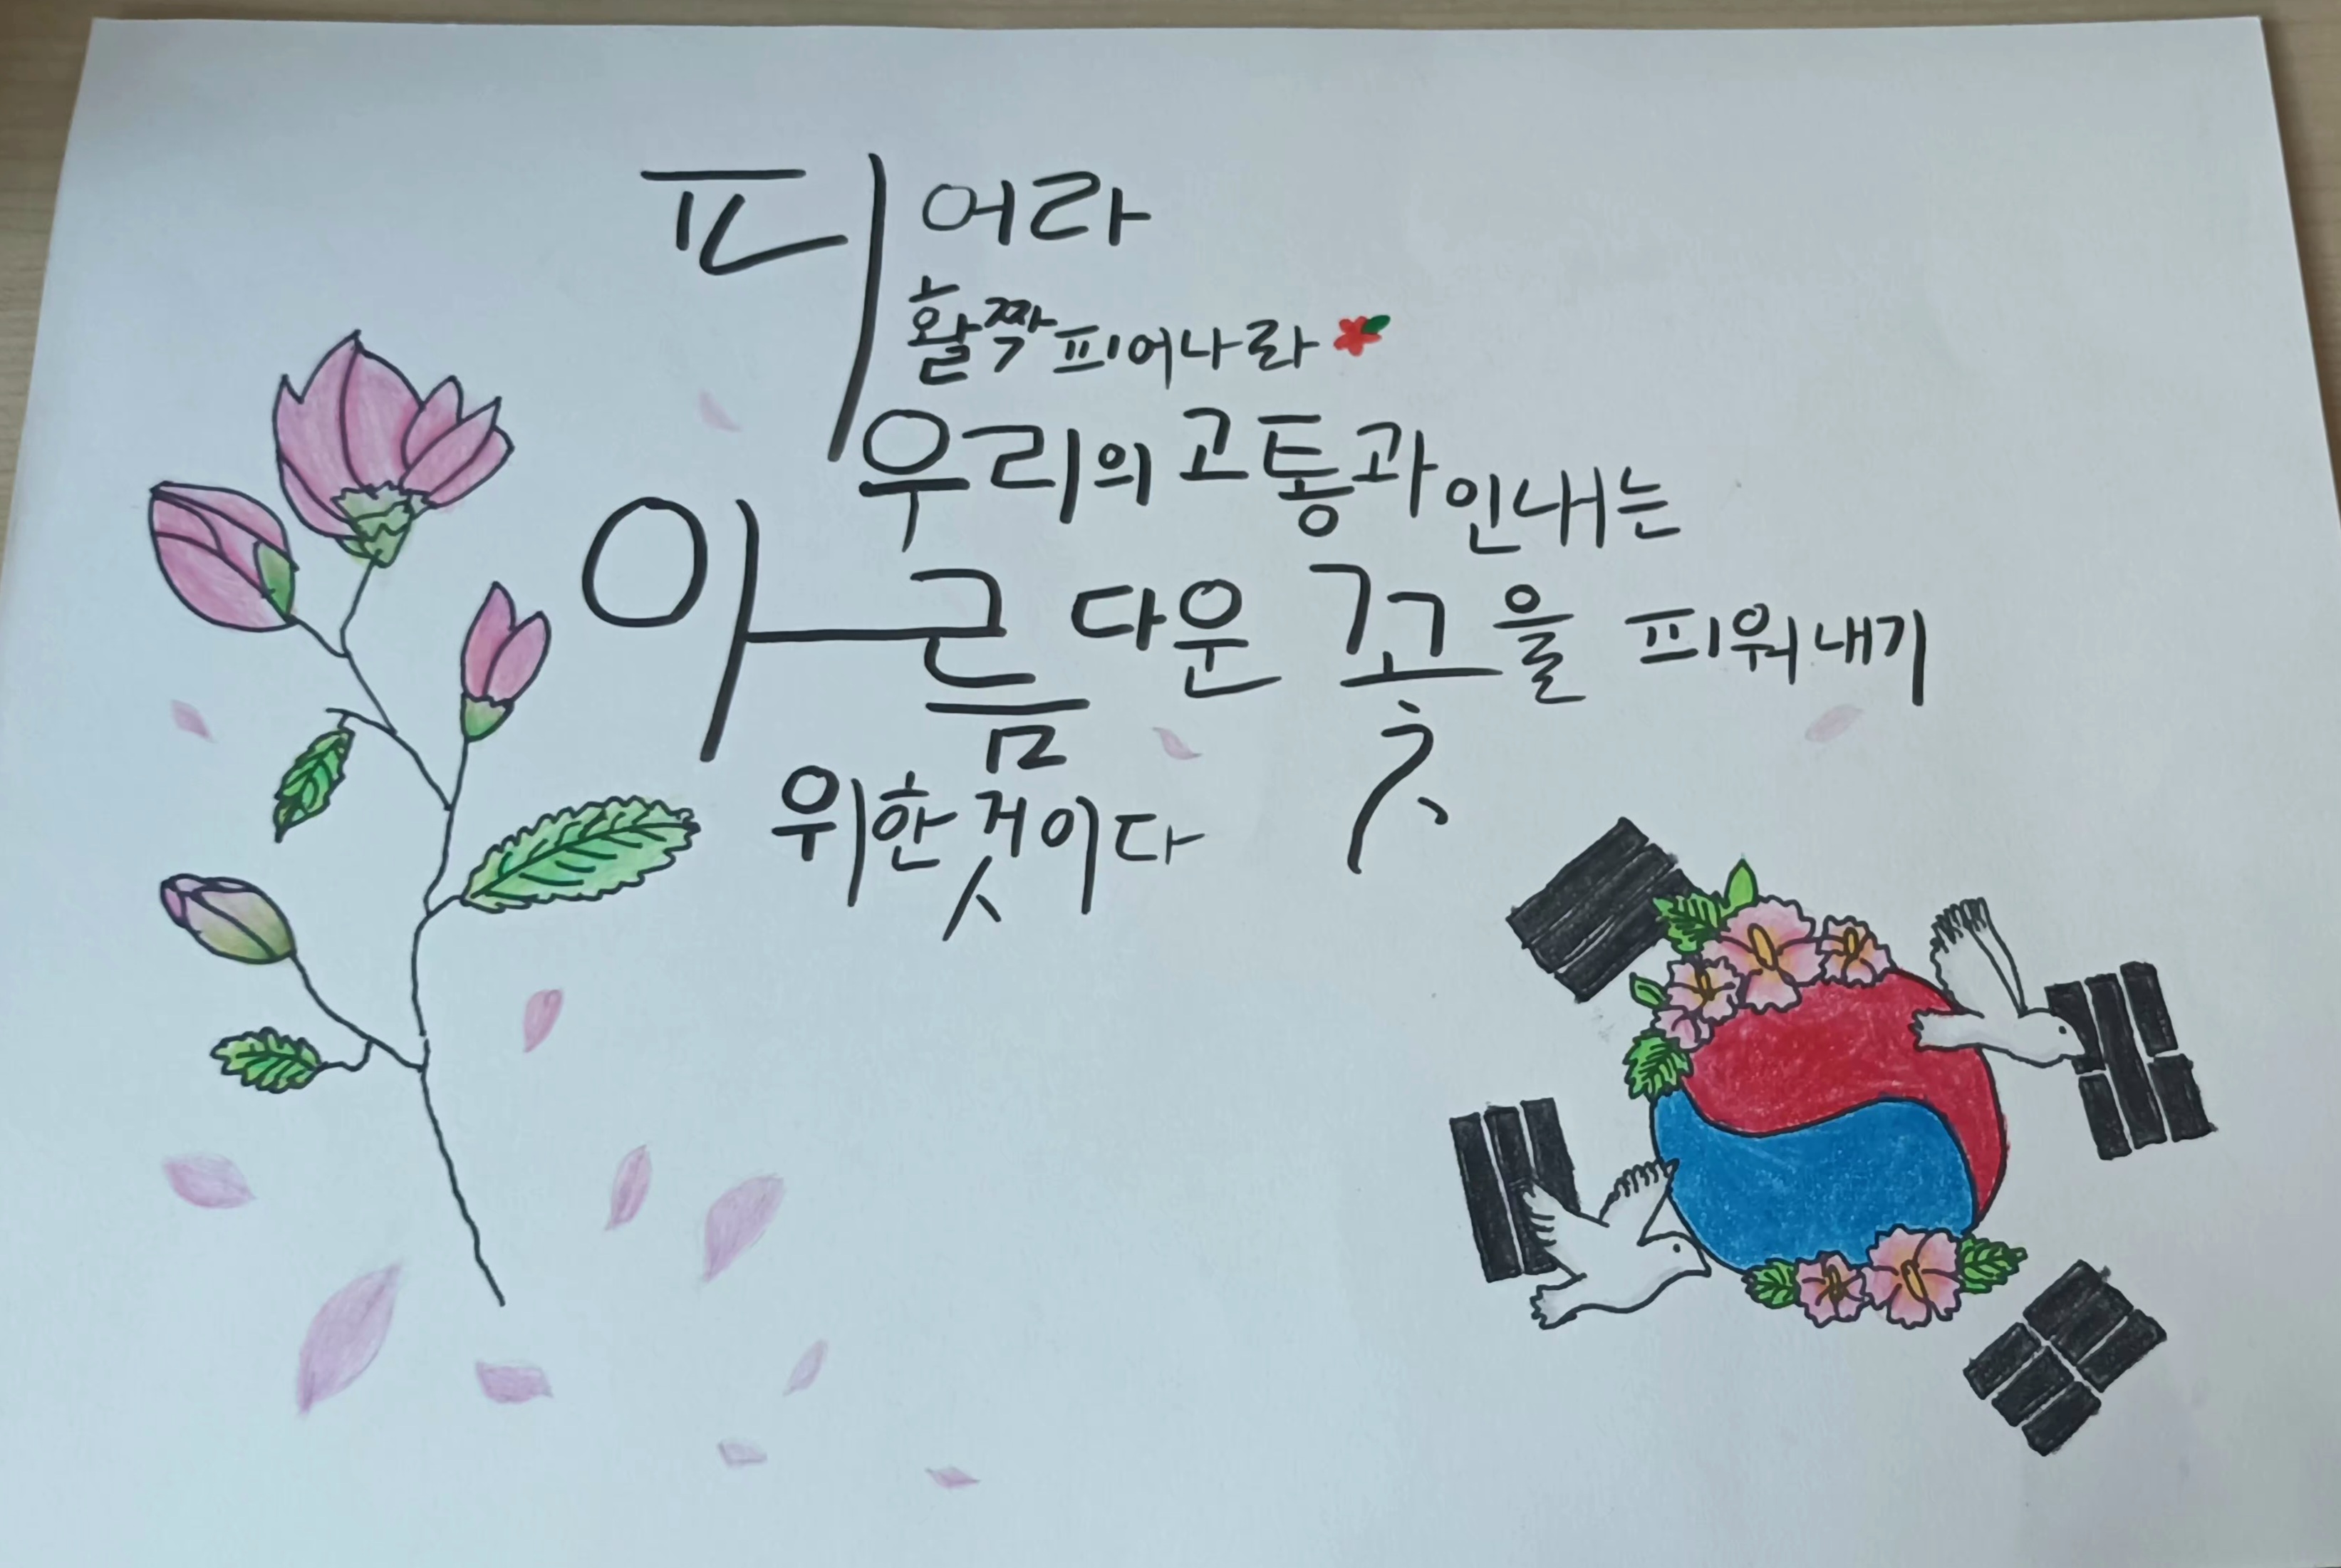 피어라
활짝 피어나라
우리의 고통과 인내는
아름다운 꽃을 피워내기
위한 것이다